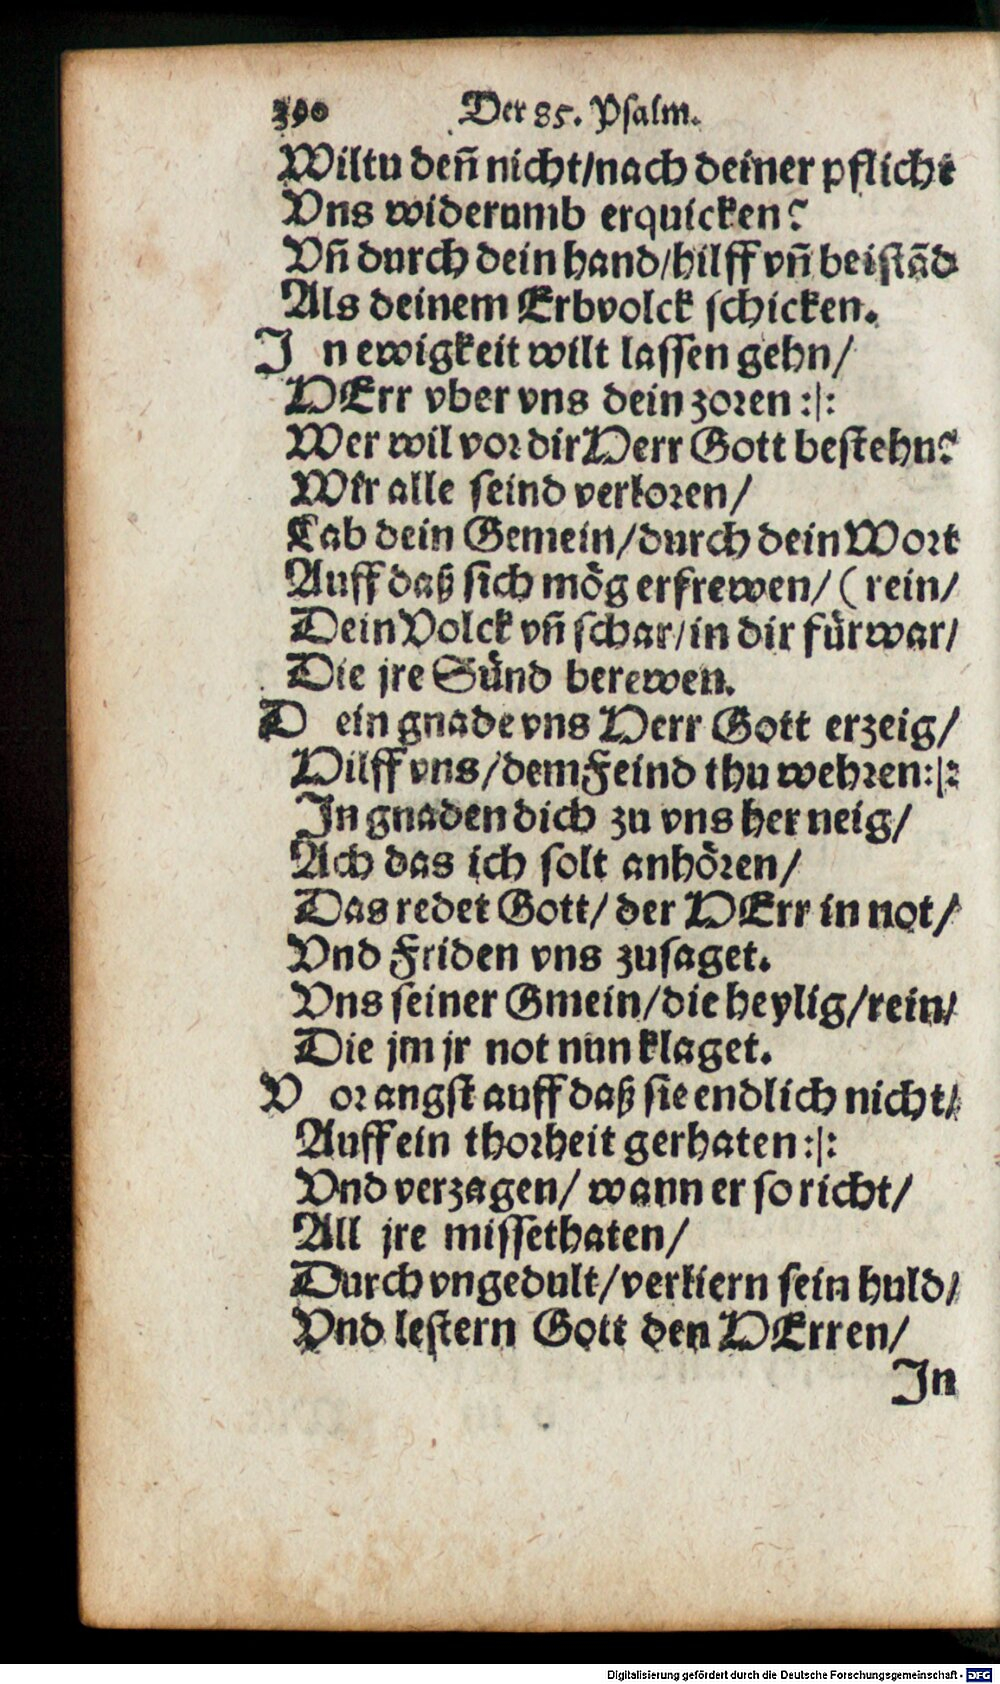 390 Der 85. Psalm.
Wiltu deñ nicht/nach deiner pflicht
Vns widerumb erquicken?
Vñ durch dein hand/hilff vñ beistãd
Als deinem Erbvolck schicken.
J n ewigkeit wilt lassen gehn/
HErr vber vns dein zoren :|:
Wer wil vor dir Herr Gott bestehn?
Wir alle seind verloren/
Lab dein Gemein/durch dein Wort
Auff daß sich mög erfrewen/ (rein/
Dein Volck vñ schar/in dir fürwar/
Die jre Sünd berewen.
D ein gnade vns Herr Gott erzeig/
Hilff vns/dem Feind thu wehren:|:
Jn gnaden dich zu vns her neig/
Ach das ich solt anhören/
Das redet Gott/ der HErr in not/
Vnd Friden vns zusaget.
Vns seiner Gmein/die heylig/rein/
Die jm jr not nun klaget.
V or angst auff daß sie endlich nicht/
Auff ein thorheit gerhaten:|:
Vnd verzagen/ wann er so richt/
All jre missethaten/
Durch vngedult/verliern sein huld/
Vnd lestern Gott den HErren/
Jn
Digitalisierung gefördert durch die Deutsche Forschungsgemeinschaft - DFG